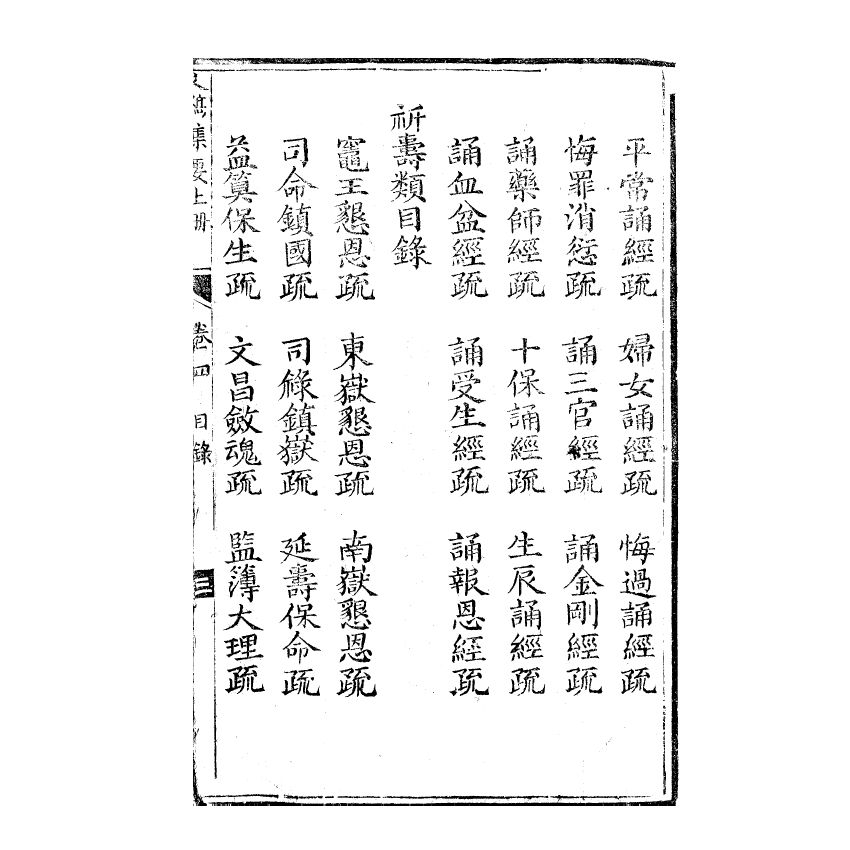 平常誦經疏 婦女誦經疏 悔過誦經疏
悔罪消愆疏 誦三官經疏 誦金剛經疏
誦藥師經疏 十保誦經疏 生辰誦經疏
誦血盆經疏 誦受生經疏 誦報恩經疏
祈壽類目錄
竈王懇恩疏 東嶽懇恩疏 南嶽懇恩疏
司命鎮國疏 司祿鎮嶽疏 延壽保命疏
益算保生疏 文昌斂魂疏 監簿大理疏
集要上冊 卷四 目錄 三